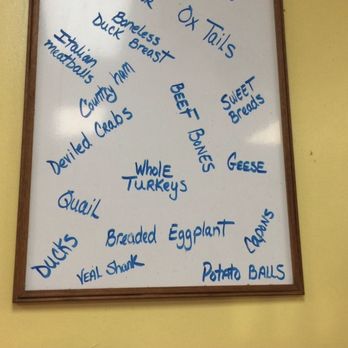 Ox Tails
Boneless
Duck Breast
Italian
meatballs
Country ham
BEEF BONES
SWEET
Breads
Deviled Crabs
WHOLE
TURKeys
GEESE
Quail
Breaded Eggplant
Capons
Ducks
VEAL Shank
POTATO BALLS